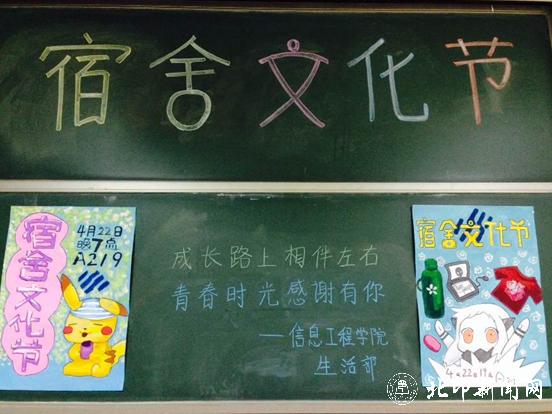 宿舍文化节
宿舍文化节
4月22日
晚7点
A219
成长路上相伴左右
青春时光感谢有你
——信息工程学院
生活部
宿舍文化节
4月22日
北印新闻网